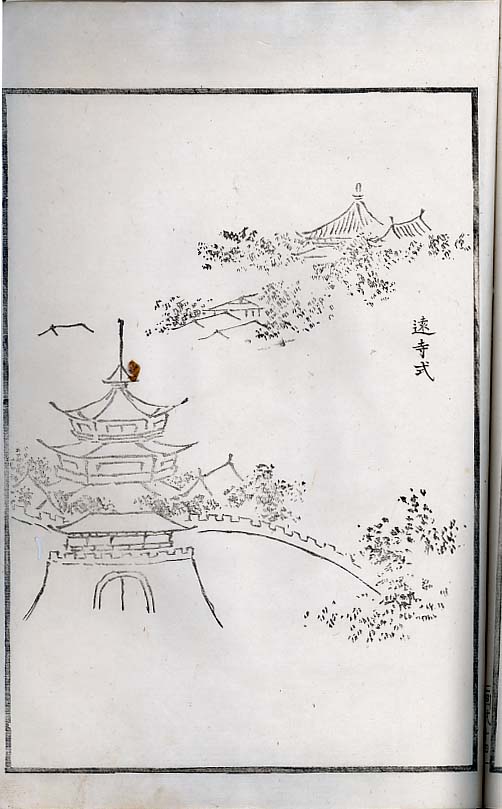 遠寺式